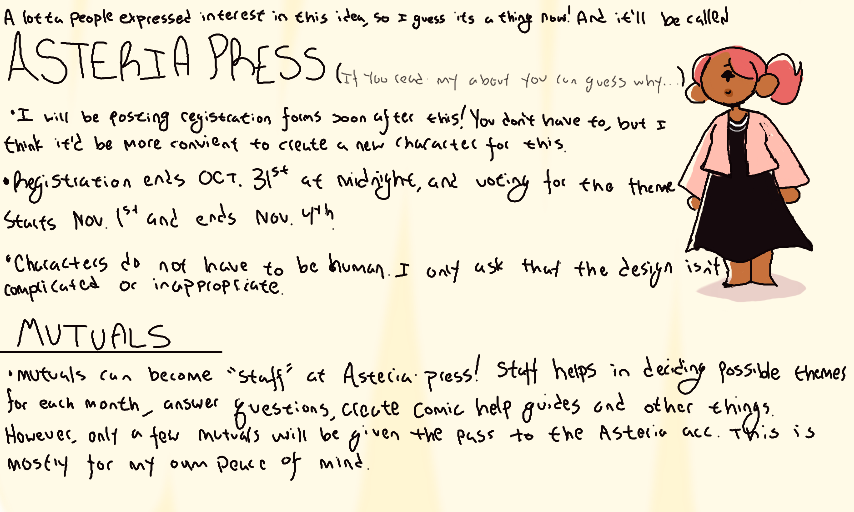 A lotta people expressed interest in this idea, so I guess its a thing now! And it'll be called
ASTERIA PRESS (If you read my about you can guess why...)
•I will be posting registration forms soon after this! You don't have to, but I
think it'd be more convient to create a new character for this.
•Registration ends OCT. 31st at midnight, and voting for the theme
Starts Nov. 1st and ends Nov. 4th.
•Characters do not have to be human. I only ask that the design isn't
complicated or inappropriate.
MUTUALS
•mutuals can become "staff" at Asteria press! Staff helps in deciding possible themes
for each month, answer questions, create comic help guides and other things.
However, only a few mutuals will be given the pass to the Asteria acc. This is
mostly for my own peace of mind.